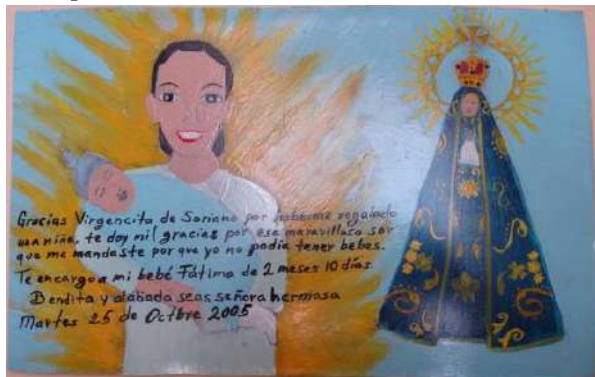 Gracias Virgencita de Soriano por haberme regalado
una niña, te doy mil gracias por ese maravilloso ser
que me mandaste por que yo no podia tener bebes.
Te encargo a mi bebé Fátima de 2 meses 10 días.
Bendita y alabada seas señora hermosa
Martes 25 de Octbre 2005